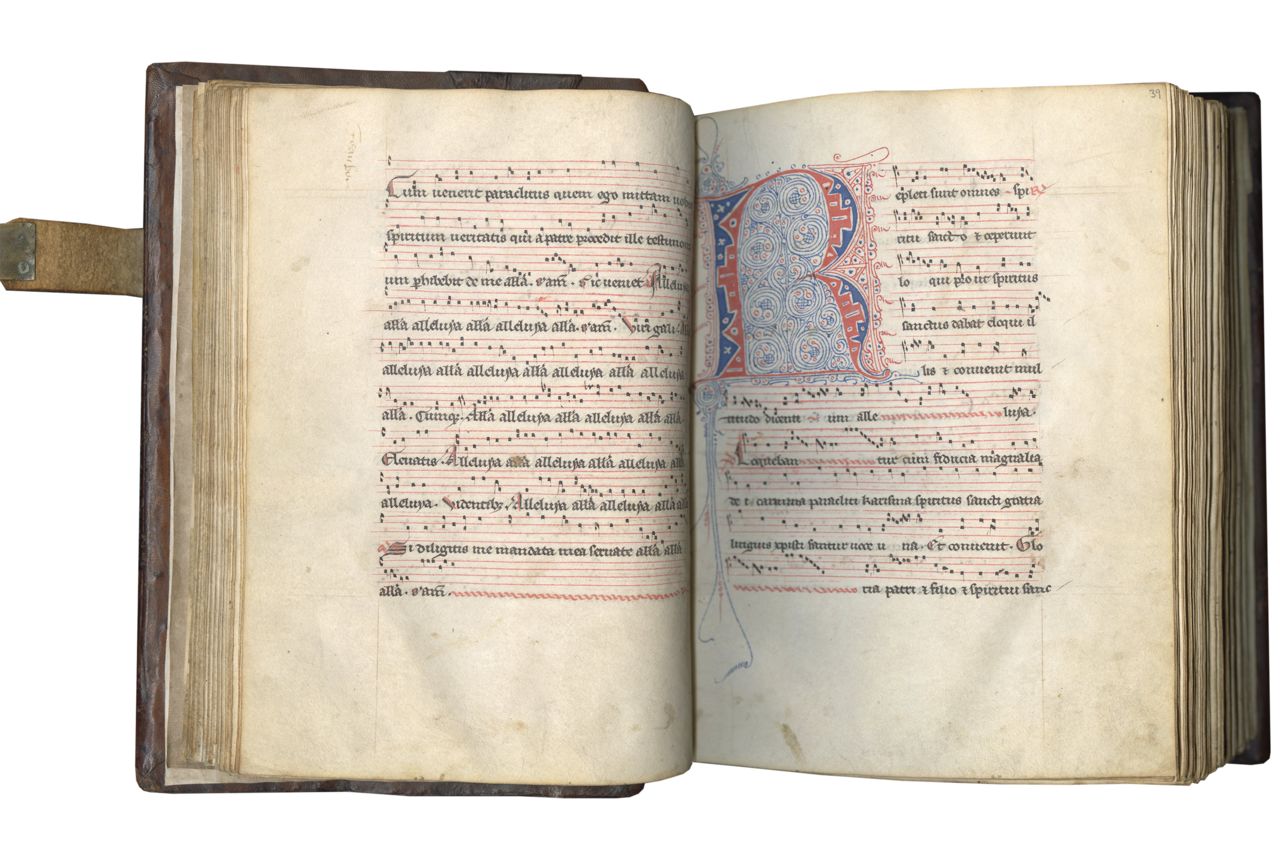 Cum venerit paraclitus quem ego mittam vobis
spiritum veritatis qui a patre procedit ille testimoni
um phibebit de me alla. Sic veniet Alleluya
alla alleluya alla alleluya alla. Viri gali.
alleluya alla alleluya alla alleluya alla alleluya
alla. Cumq; Alla alleluya alla alleluya alla alla.
Elevatis. Alleluya alla alleluya alla alleluya alla
alleluya. Videntibz. Alleluya alla alleluya alla alla
Si diligitis me mandata mea servate alla alla
alla.
39
Repleti sunt omnes spi
ritu sancto & ceperunt
lo qui pro ut spiritus
sanctus dabat eloqui il
lis & convenit mul
titudo dicenti um alle luya.
Loqueban tur cum fiducia magnalia
de i. carmina paracliti karisma spiritus sancti gratia
. Et convenit. Glo
ria patri & filio & spiritui sanc